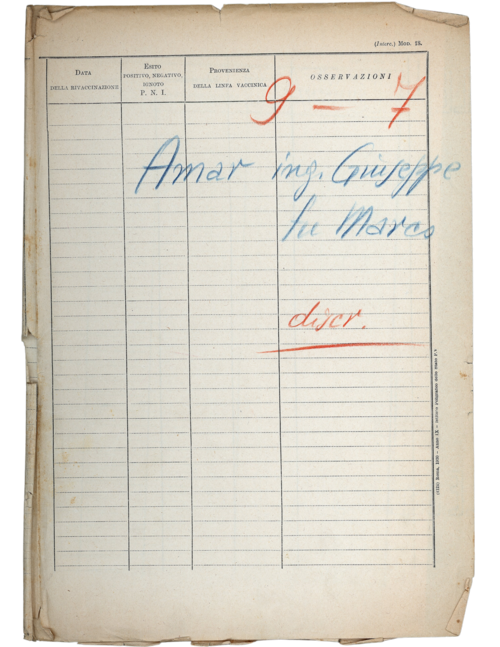 (Intern.) Mod. 13.
DATA
DELLA RIVACCINAZIONE
ESITO
POSITIVO, NEGATIVO,
IGNOTO
P. N. I.
PROVENIENZA
DELLA LINFA VACCINICA
OSSERVAZIONI
9 - 7
Amar ing. Giuseppe
fu Marco
discr.
Roma, 1931 - Anno IX -